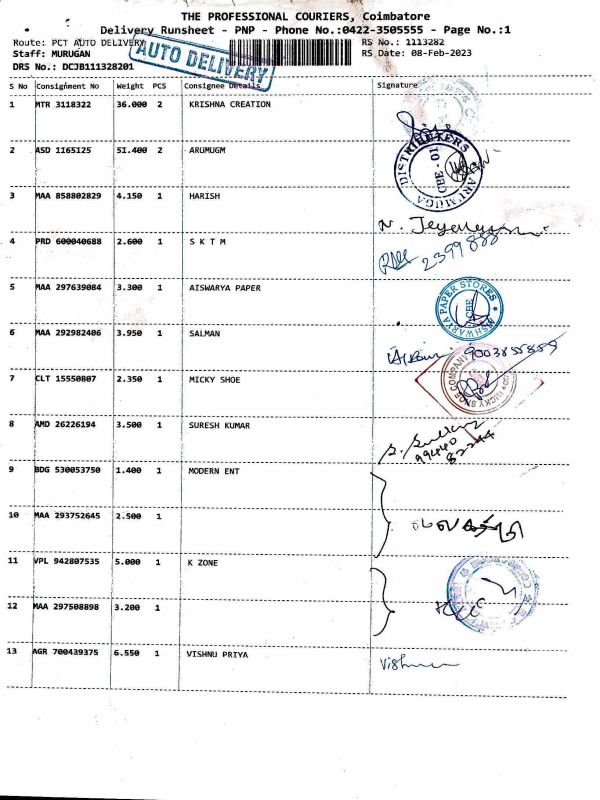 THE PROFESSIONAL COURIERS, Coimbatore
Delivery Runsheet - PNP - Phone No.:0422-3505555 - Page No.:1
Route: PCT AUTO DELIVERY RS No.: 1113282
Staff: MURUGAN RS Date: 08-Feb-2023
DRS No.: DCJB111328201
AUTO DELIVERY
S No Consignment No Weight PCS Consignee Details Signature
1 MTR 3118322 36.000 2 KRISHNA CREATION
2 ASD 1165125 51.400 2 ARUMUGM
DISTRIBUTERS ARUMUGA CBE - 10
3 MAA 858802829 4.150 1 HARISH
4 PRD 600040688 2.600 1 S K T M
2399888
5 MAA 297639084 3.300 1 AISWARYA PAPER
AISHWARYA PAPER STORES CBE
6 MAA 292982406 3.950 1 SALMAN
9003855859
7 CLT 15550807 2.350 1 MICKY SHOE
MICKY SHOE COMPANY
8 AMD 26226194 3.500 1 SURESH KUMAR
99440
82244
9 BDG 530053750 1.400 1 MODERN ENT
10 MAA 293752645 2.500 1
11 VPL 942807535 5.000 1 K ZONE
12 MAA 297508898 3.200 1
13 AGR 700439375 6.550 1 VISHNU PRIYA